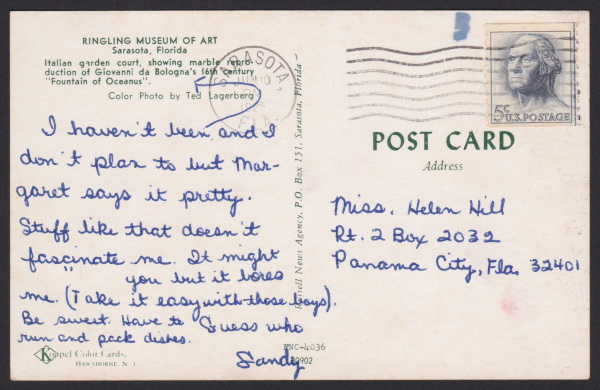 RINGLING MUSEUM OF ART
Sarasota, Florida
Italian garden court, showing marble repro-
duction of Giovanni da Bologna's 16th century
"Fountain of Oceanus".
Color Photo by Ted Lagerberg
I haven't been and I
don't plan to but Mar-
garet says it pretty.
Stuff like that doesn't
fascinate me. It might
" you but it bores
me. (Take it easy with those boys).
Be sweet. Have to Guess who
run and pack dishes.
Sandy
Koppel Color Cards
HAWTHORNE, N. J.
SARASOTA
FLA.
News Agency, P.O. Box 151, Sarasota, Florida
ENC-4036
5¢ U.S. POSTAGE
POST CARD
Address
Miss. Helen Hill
Rt. 2 Box 2032
Panama City, Fla. 32401